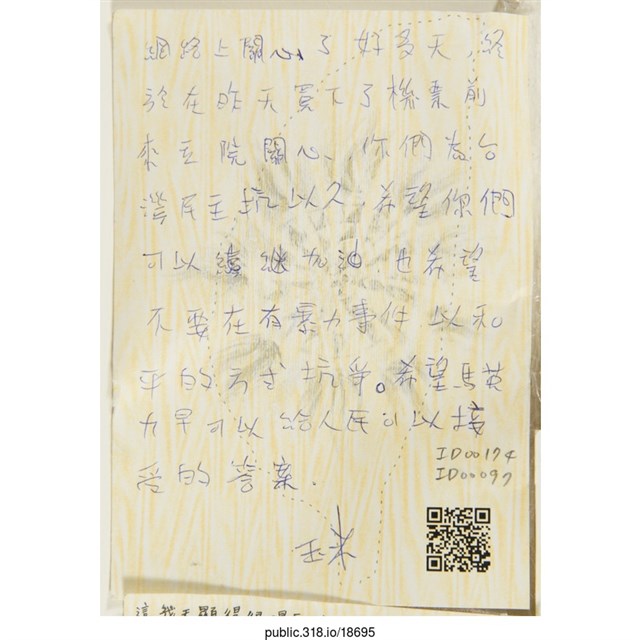 網路上關心了好多天,終
於在昨天買下了機票前
來立院關心、你們為台
灣民主坑以久,希望你們
可以繼續加油,也希望
不要在有暴力事件 以和
平的方式 坑爭。希望馬英
九早可以給人民可以接
受的答案.
玉米
ID00174
ID00097
public.318.io/18695